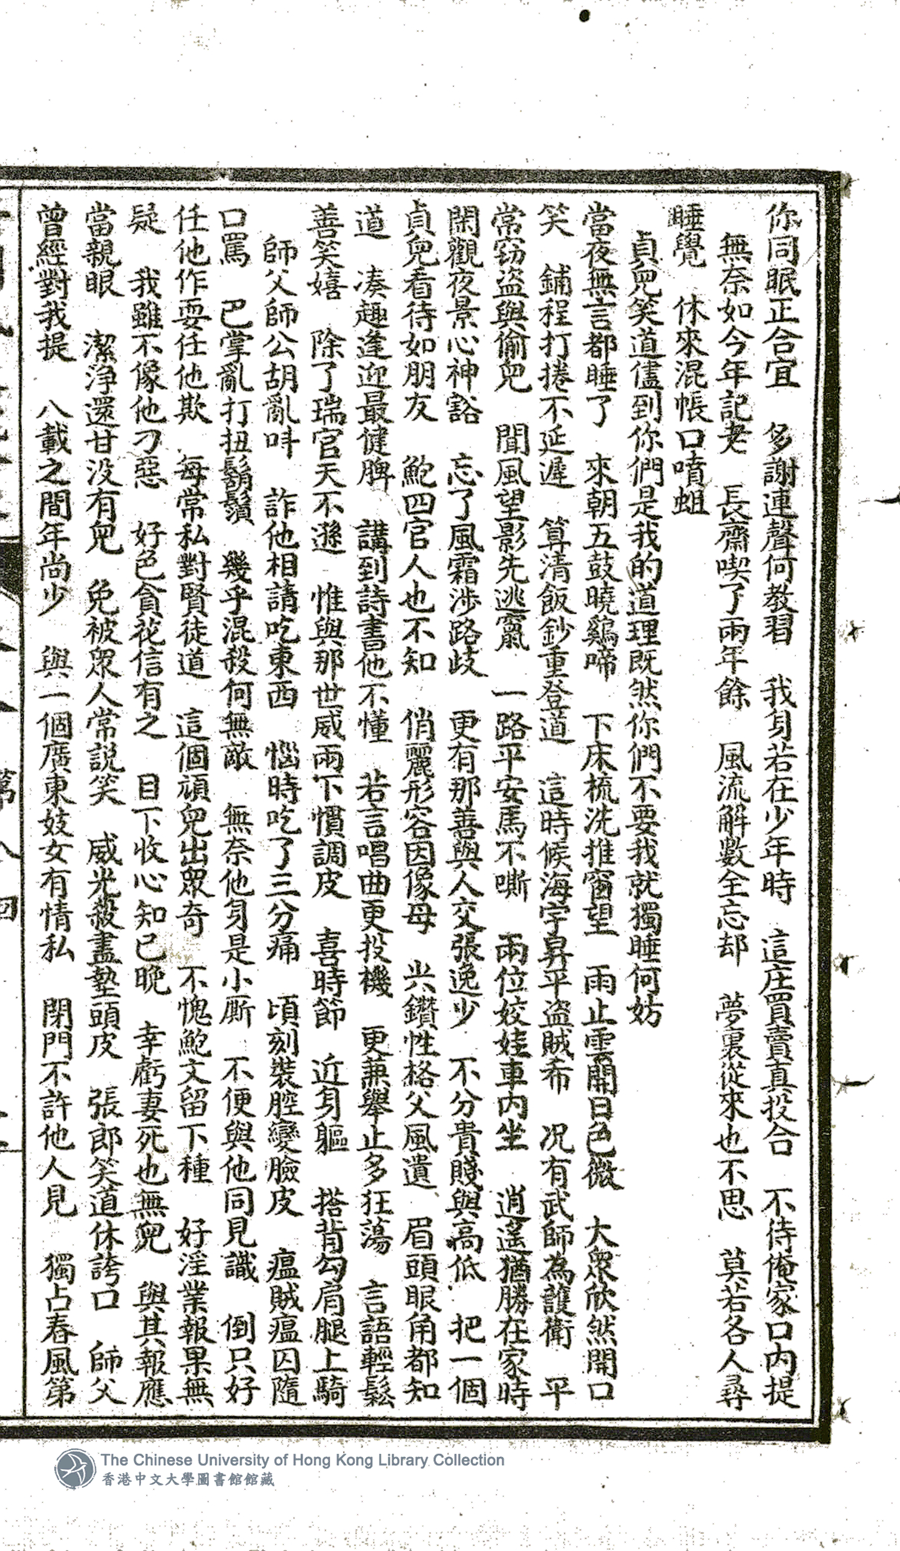 你同眠正合宜　多謝連聲何教習　我身若在少年時　這庄買賣真投合　不待俺家口內提
無奈如今年記老　長齋喫了兩年餘　風流解數全忘却　夢裏從來也不思　莫若各人尋
睡覺　休來混帳口噴蛆
貞兒笑道儘到你們是我的道理既然你們不要我就獨睡何妨
當夜無言都睡了　來朝五鼓曉鷄啼　下床梳洗推窗望　雨止雲開日色微　大衆欣然開口
笑　鋪程打捲不延遲　算清飯鈔重登道　這時候海宇昇平盜賊布　况有武師為護衛　平
常窃盜與偷兒　聞風望影先逃竄　一路平安馬不嘶　兩位姣娃車內坐　逍遙猶勝在家時
閑觀夜景心神豁　忘了風霜涉路歧　更有那善與人交張逸少　不分貴賤與高低　把一個
貞兒看待如朋友　鮑四官人也不知　俏麗形容因像母　尖鑽性格父風遺　眉頭眼角都知
道　凑趣逢迎最健脾　講到詩書他不懂　若言唱曲更投機　更兼舉止多狂蕩　言語輕鬆
善笑嬉　除了瑞官天不遜　惟與那世威兩下慣調皮　喜時節　近身軀　搭背勾肩腿上騎
師父師公胡亂呌　詐他相請吃東西　惱時吃了三分痛　頃刻裝腔變臉皮　瘟賊瘟囚隨
口罵　巴掌亂打扭鬍鬚　幾乎混殺何無敵　無奈他身是小厮　不便與他同見識　倒只好
任他作耍任他欺　每常私對賢徒道　這個頑兒出衆奇　不愧鮑文留下種　好淫業報果無
疑　我雖不像他刁惡　好色貪花信有之　目下收心知已晚　幸虧妻死也無兒　與其報應
當親眼　潔淨還甘没有兒　免被衆人常説笑　威光殺盡墊頭皮　張郎笑道休誇口　師父
曾經對我提　八載之間年尚少　與一個廣東妓女有情私　閉門不許他人見　獨占春風第
第八
The Chinese University of Hong Kong Library Collection
香港中文大學圖書館館藏